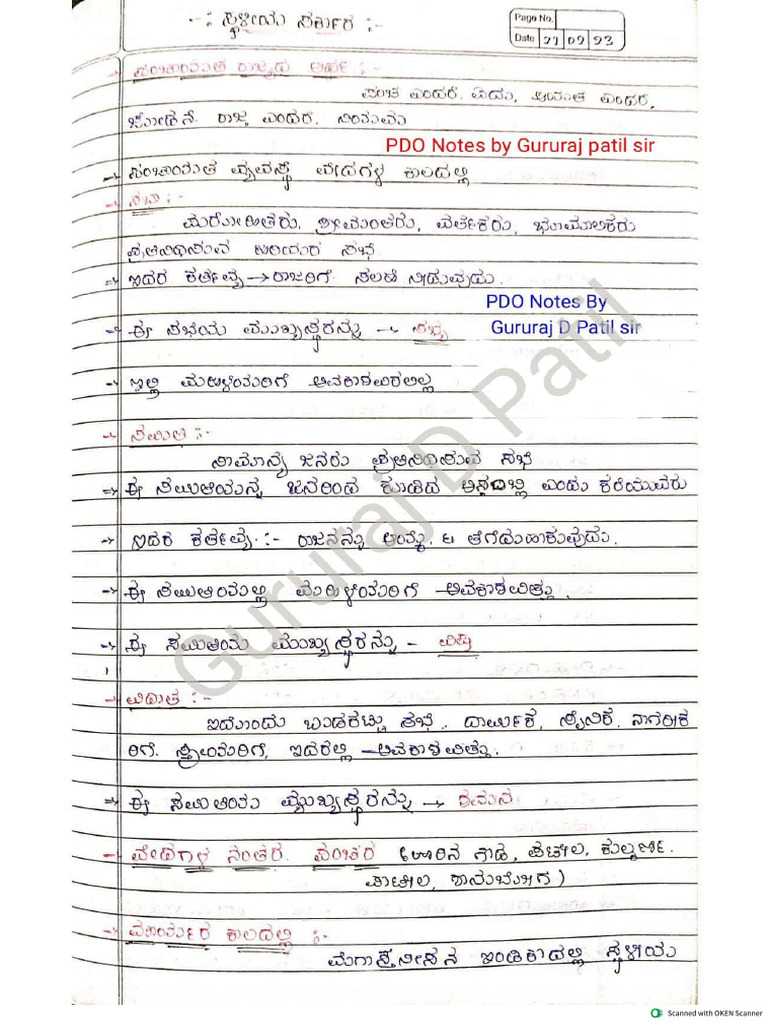 -: ಸ್ಥಳೀಯ ಸರ್ಕಾರ :-
Page No.
Date 27 09 23
→ ಪಂಚಾಯತ ರಾಜ್ಯದ ಅರ್ಥ :-
ಪಂಚ ಎಂದರೆ. ಐದು, ಆಯಾತ ಎಂದರೆ,
ರಾಜ ಎಂದರೆ.
PDO Notes by Gururaj patil sir
→ ಪಂಚಾಯತ ವ್ಯವಸ್ಥೆ ವೇದಗಳ ಕಾಲದಲ್ಲಿ
→ ಸಭಾ :-
ಪುರೋಹಿತರು, ಶ್ರೀಮಂತರು, ವರ್ತಕರು, ಭೂಮಾಲಿಕರು
ಪ್ರತಿನಿಧಿಸುವ ಹಿರಿಯರ ಸಭೆ
→ ಇದರ ಕರ್ತವ್ಯ → ರಾಜರಿಗೆ ಸಲಹೆ ನೀಡುವುದು.
PDO Notes By
Gururaj D Patil sir
→ ಈ ಸಭೆಯ ಮುಖ್ಯಸ್ಥರನ್ನು → ಸಭ್ಯ
→ ಇಲ್ಲಿ ಮಹಿಳೆಯರಿಗೆ ಅವಕಾಶವಿರಲಿಲ್ಲ
→ ಸಮಿತಿ :-
ಸಾಮಾನ್ಯ ಜನರು ಪ್ರತಿನಿಧಿಸುವ ಸಭೆ
→ ಈ ಸಮಿತಿಯನ್ನು ಜನರಿಂದ ಕೂಡಿದ ಅಸೆಂಬ್ಲಿ ಎಂದು ಕರೆಯುವರು
→ ಇದರ ಕರ್ತವ್ಯ :- ರಾಜನನ್ನು ಆಯ್ಕೆ. & ತೆಗೆದುಹಾಕುವುದು.
→ ಈ ಸಮಿತಿಯಲ್ಲಿ ಮಹಿಳೆಯರಿಗೆ ಅವಕಾಶವಿತ್ತು.
→ ಈ ಸಮಿತಿಯ ಮುಖ್ಯಸ್ಥರನ್ನು -
→ ವಿಧಾತ :-
ಇದೊಂದು ಬುಡಕಟ್ಟು ಸಭೆ. ಧಾರ್ಮಿಕ, ಸೈನಿಕ. ನಾಗರೀಕ
ರಿಗೆ. ಸ್ತ್ರೀಯರಿಗೆ, ಇದರಲ್ಲಿ ಅವಕಾಶವಿತ್ತು.
→ ಈ ಸಮಿತಿಯ ಮುಖ್ಯಸ್ಥರನ್ನು →
→ ವೇದಗಳ ನಂತರ. ಪಂಚರ (ಊರಿನ ಗೌಡ, ಪಟೇಲ, ಕುಲ್ಕರ್ಣಿ.
ಪಾಟೀಲ, ಶಾನುಭೋಗ)
→ ಮೌರ್ಯರ ಕಾಲದಲ್ಲಿ :-
ಮೆಗಾಸ್ತನೀಸನ ಇಂಡಿಕಾದಲ್ಲಿ ಸ್ಥಳೀಯ
Gururaj D Patil
Scanned with OKEN Scanner